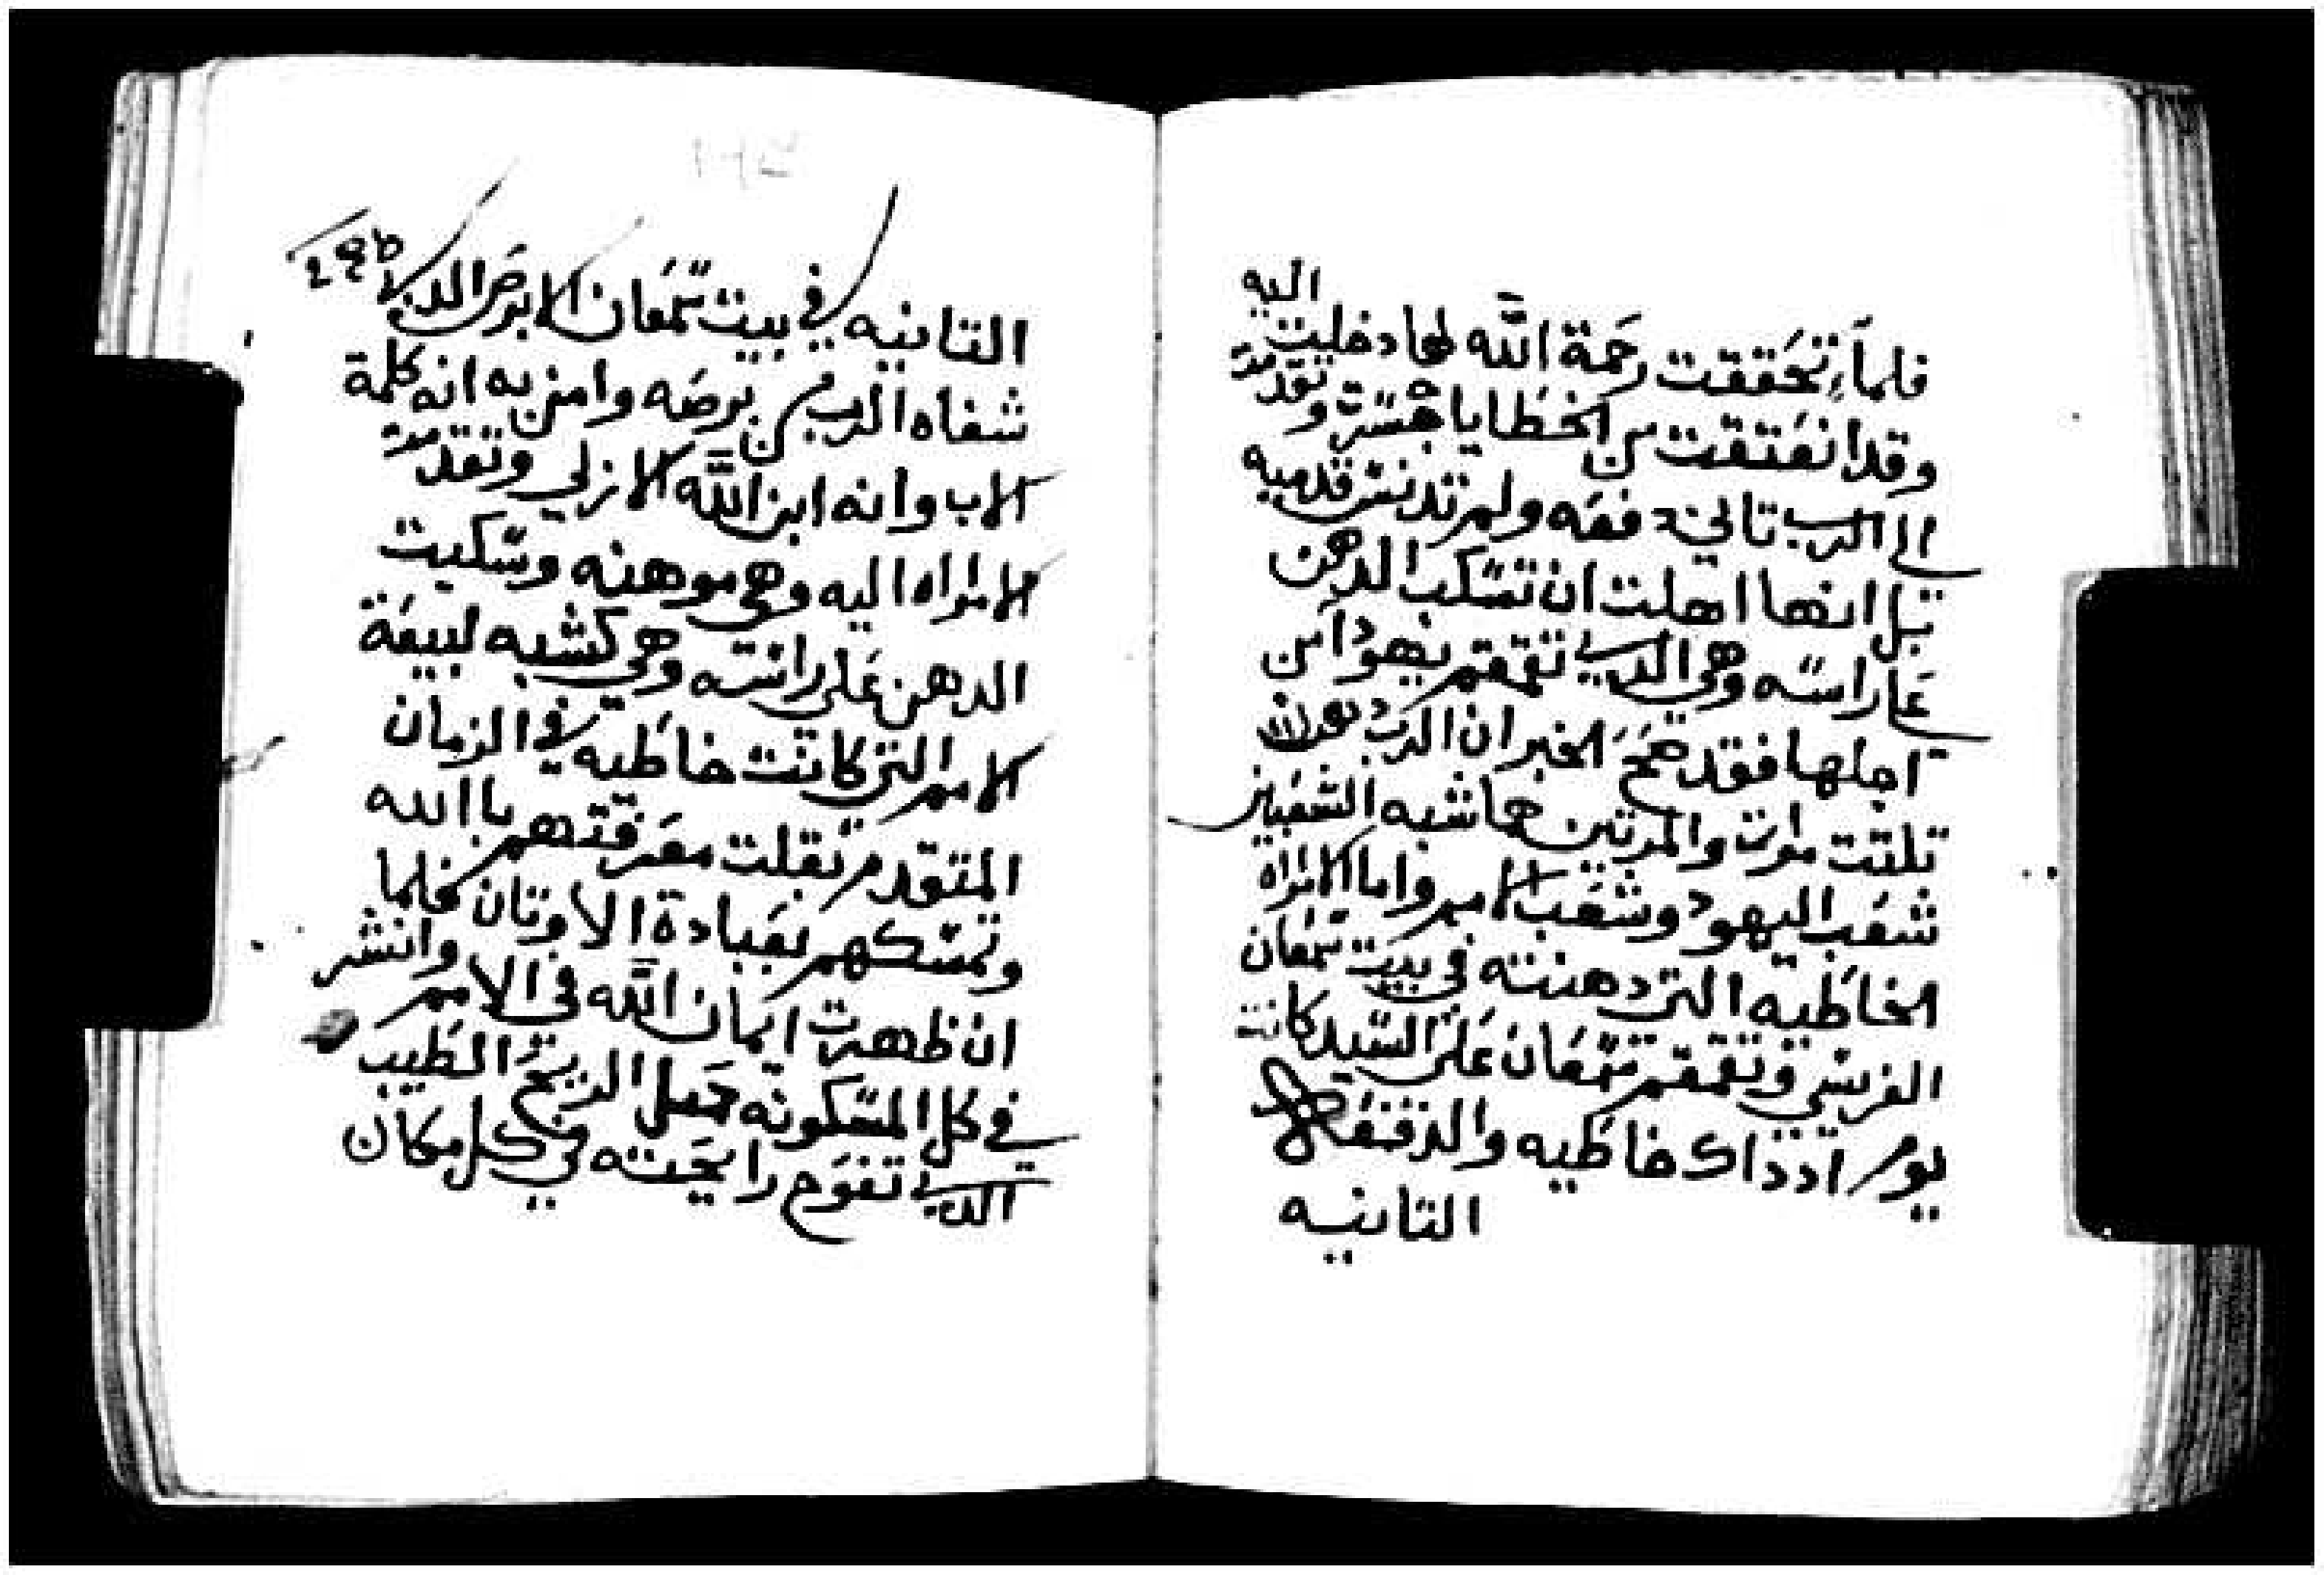 اليه
فلما تحققت رحمة الله لها دخليت
وقد انعتقت من الخطايا جسرت وتقدمت
الى الرب تاني دفعه ولم تدنس قدميه
بل انها اهلت ان تسكب الدهن
على راسه وهي الدي تقمقم يهودا من
اجلها فقد صح الخبر ان الرب دهن
تلتت مرات والمرتين هما شبه الشعبين
شعب اليهود وشعب الامم واما الامراه
الخاطيه التي دهنته في بيت سمعان
الفريسي وتقمقم سمعان على السيد كانت
يوم اذذاك خاطيه والدفعه
التانيه
التانيه في بيت سمعان الابرص الدي
شفاه الرب من برصه وامن به انه كلمة
الاب وانه ابن الله الازلي وتقدمت
الامراه اليه وهي موهنه وسكبت
الدهن على راسه وهي كشبه لبيعة
الامم التي كانت خاطيه في الزمان
المتقدم بقلت معرفتهم باالله
وتمسكهم بعبادة الاوتان فلما
ان ظهرت ايمان الله في الامم وانتشر
في كل المسكونه جعل الريح الطيب
الدي تفوح رايحته في كل مكان